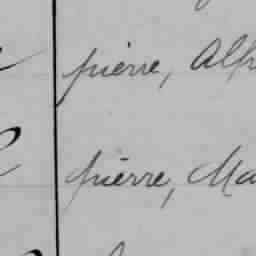 pierre, Alf
pierre, Ma